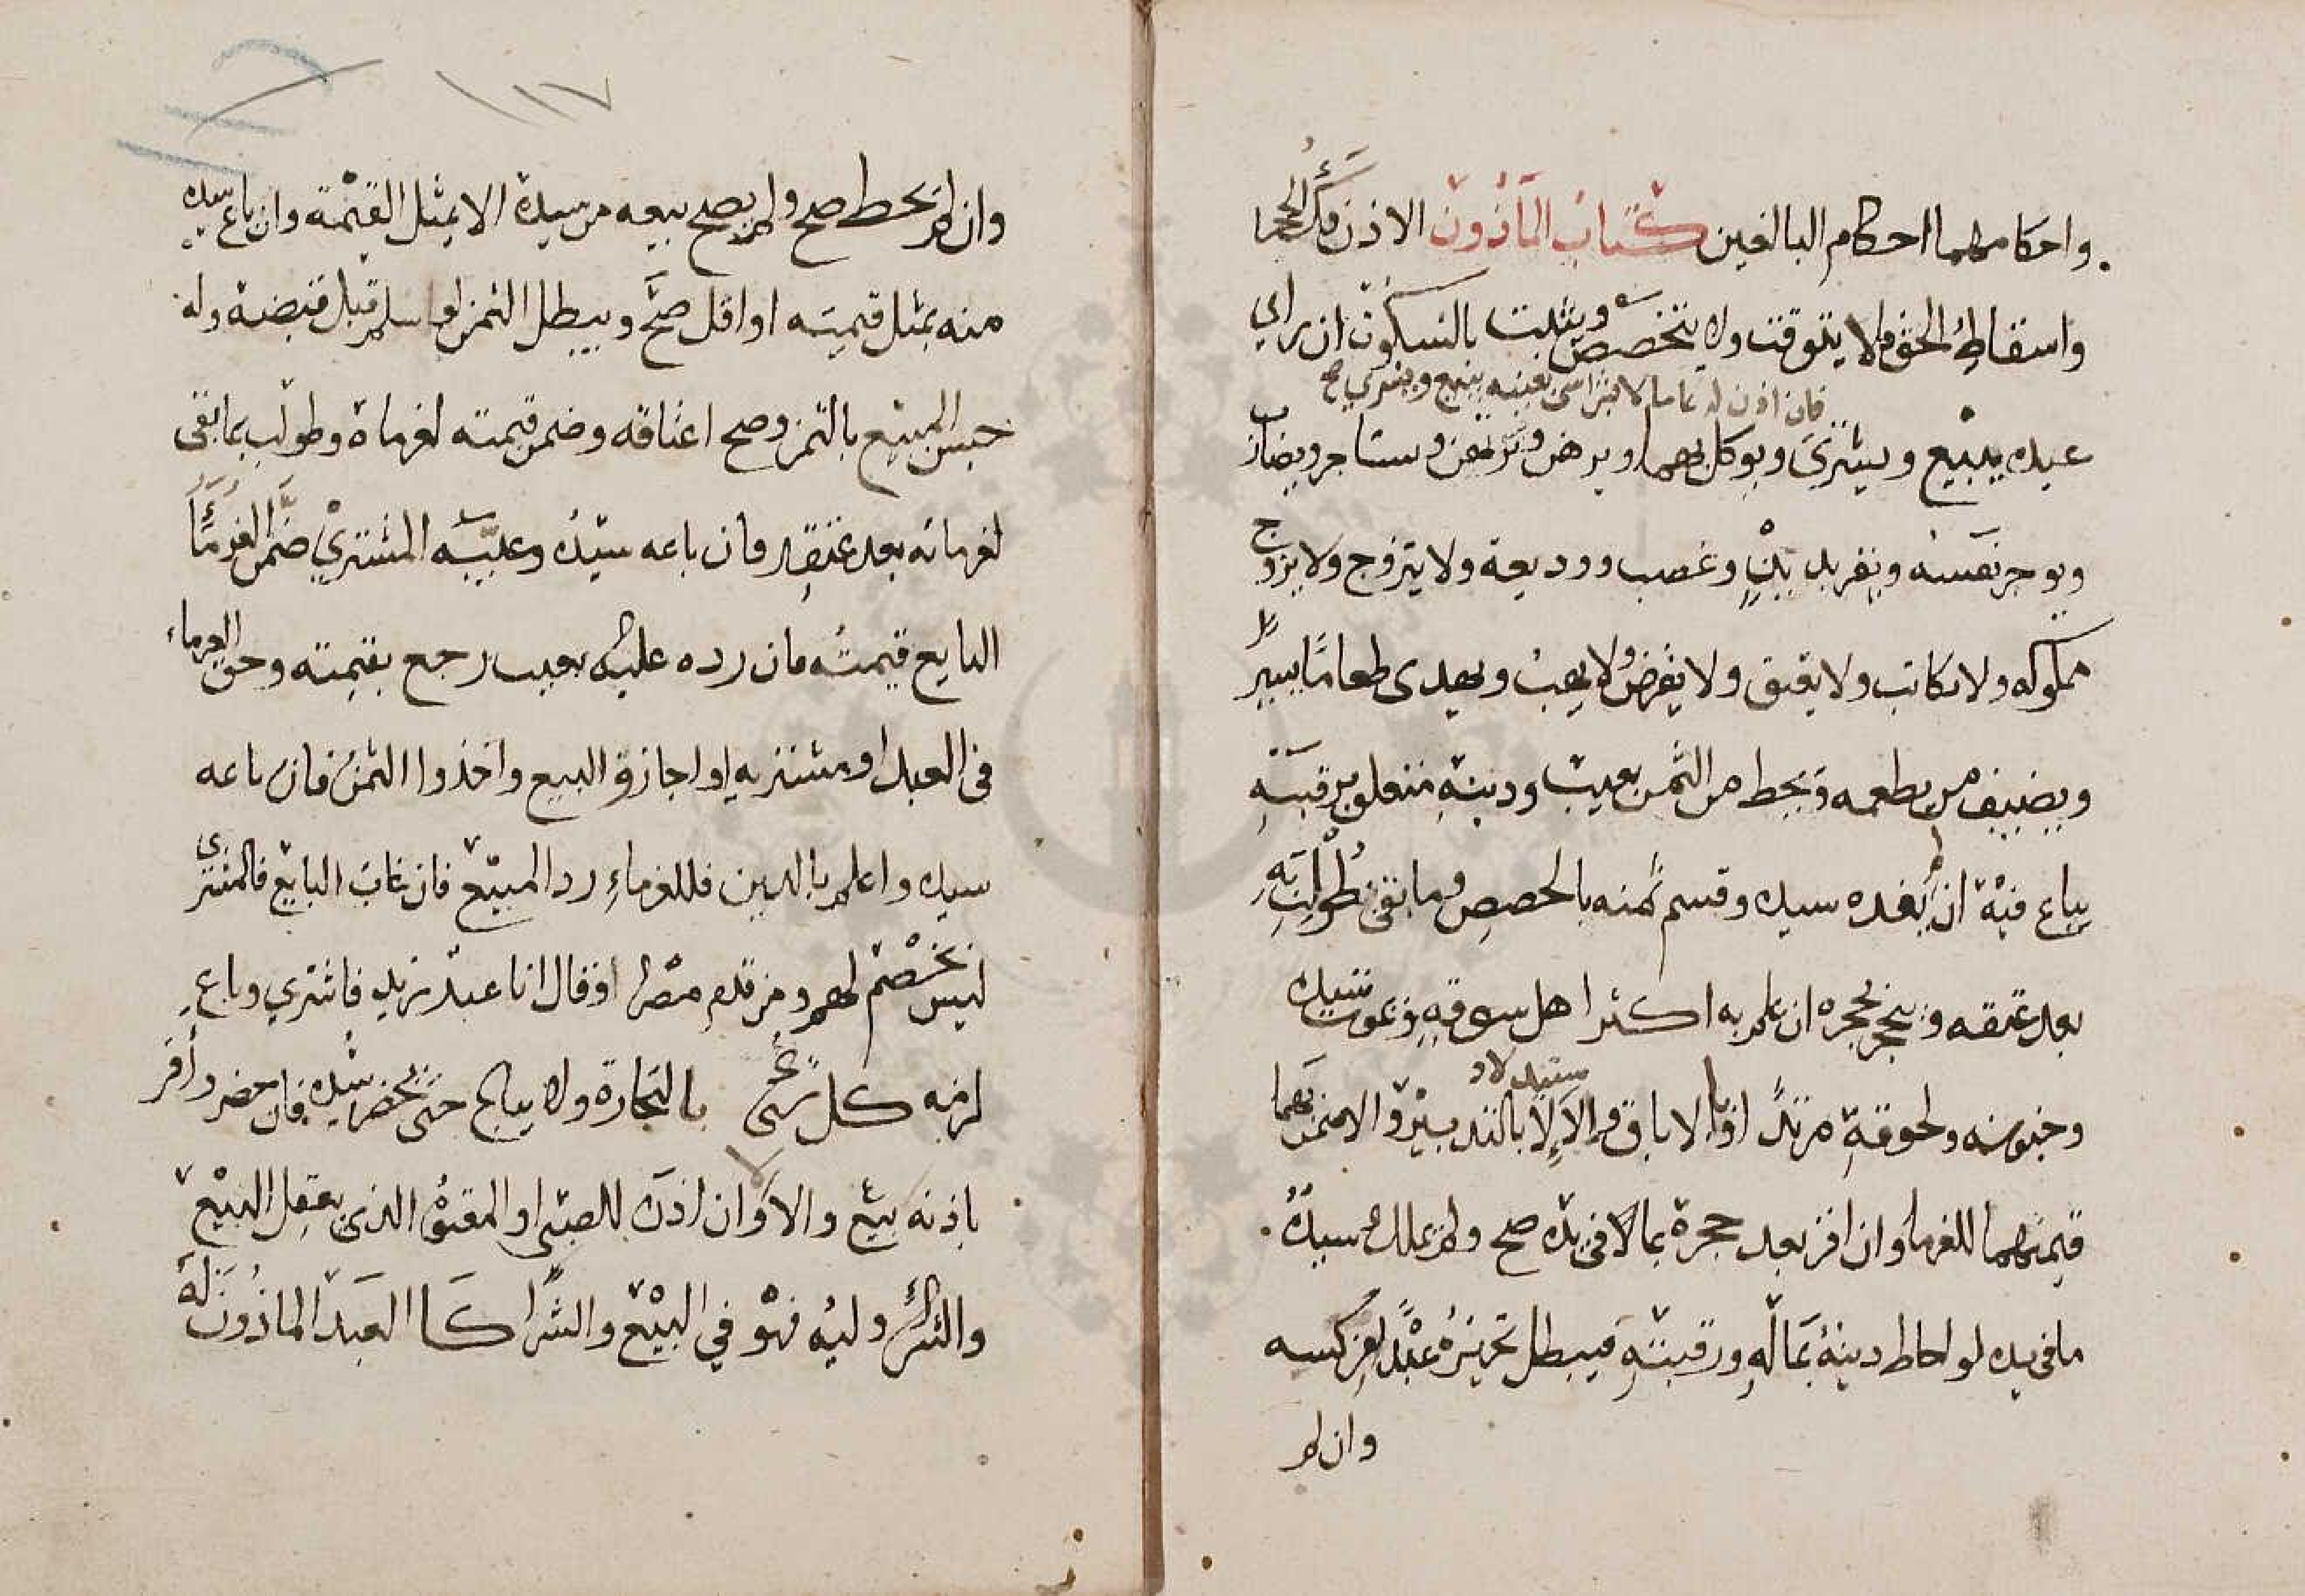 واحكامهما احكام البالغين كتاب المأذون الاذن فك الحجر
واسقاط الحق فلا يتوقت ولا يتخصص ويثبت بالسكوت ان راي
فان اذن له عاما لا بشراء شي بعينه يبيع ويشتري صح
عبده يبيع ويشتري ويوكل بهما ويرهن ويرتهن ويستاجر ويضارب
ويوجر نفسه ويقر بدين وغصب ووديعة ولا يتزوج ولا يزوج
مملوكه ولا يكاتب ولا يعتق ولا يقرض ولا يهب ويهدى طعاما يسيرا
ويضيف من يطعمه ويحط من الثمن بعيب ودينه متعلق برقبته
يباع فيه ان لم يفده سيده وقسم ثمنه بالحصص وما بقى طولب به
بعد عتقه وينحجر بحجره ان علم به اكثر اهل سوقه وبموت سيده
وجنونه ولحوقه مرتدا وبالاباق والاستيلاد
لا بالتدبير والا ضمن بهما
قيمتهما للغرما وان اقر بعد حجره بما فى يده صح ولم يملك سيده
ما فى يده لو احاط دينه بماله ورقبته فيبطل تحريره عبدا من كسبه
وان لم
١١٧
وان لم يحط صح ولم يصح بيعه من سيده الا بمثل القيمة وان باع سيده
منه بمثل قيمته او اقل صح ويبطل الثمن لو سلم قبل قبضه وله
حبس المبيع بالثمن وصح اعتاقه وضمن قيمته لغرماه وطولب بما بقى
لغرمائه بعد عتقه فان باعه سيده وغيبه المشتري ضمن الغرما
البايع قيمته فان رده عليه بعيب رجع بقيمته وحق الغرماء
فى العبد او مشتريه او اجازوا البيع واخذوا الثمن فان باعه
سيده واعلم بالدين فللغرماء رد المبيع فان غاب البايع فالمشتري
ليس بخصم لهم ومن قدم مصرا وقال انا عبد زيد فاشتري وباع
لزمه كل شي بالتجارة ولا يباع حتى يحضر سيده فان حضر واقر
باذنه بيع والا وان اذن للصبي او المعتوه الذي يعقل البيع
والشراء وليه فهو في البيع والشرا كالعبد الماذون له